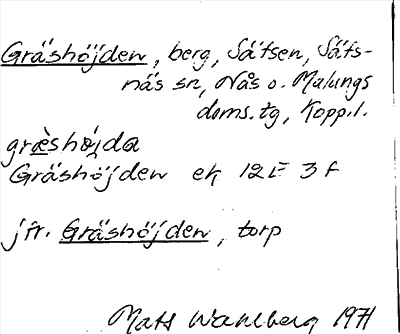 Gräshöjden, berg, Sätsen, Säfs-
näs sn, Nås o. Malungs
doms.tg, Kopp.l.
græshöjda
Gräshöjden ek 12E 3f
jfr. Gräshöjden, torp
Mats Wahlberg 1971